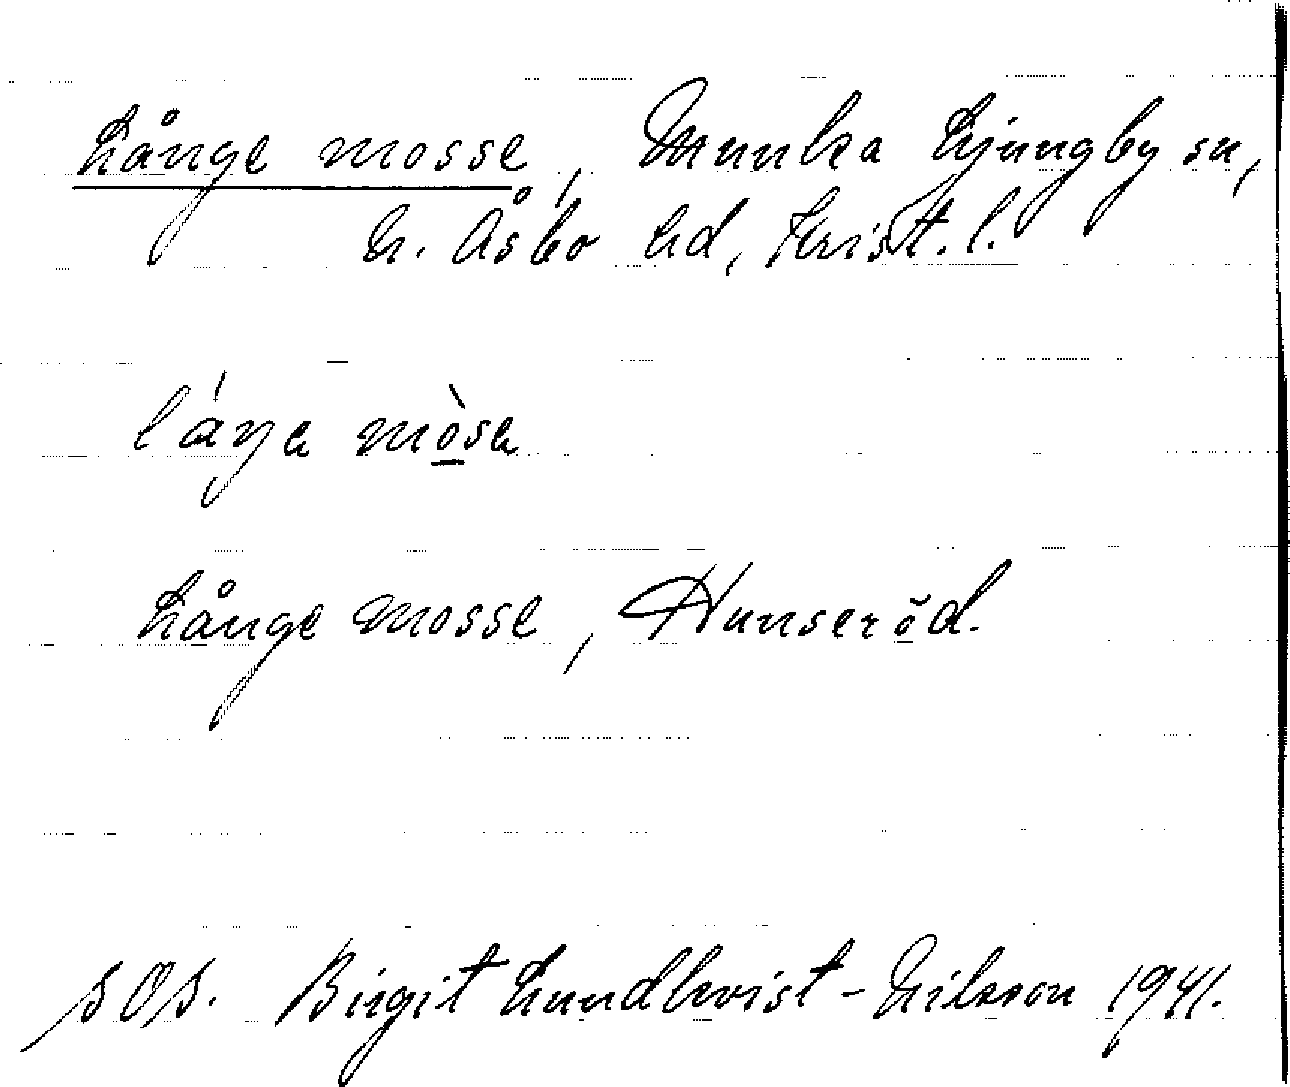 Långe mosse, Munka Ljungby sn,
N. Åsbo hd, Krist. l.
láŋa mòsa
Långe mosse, Hunseröd.
SOS. Birgit Lundkvist-Nilsson 1941.